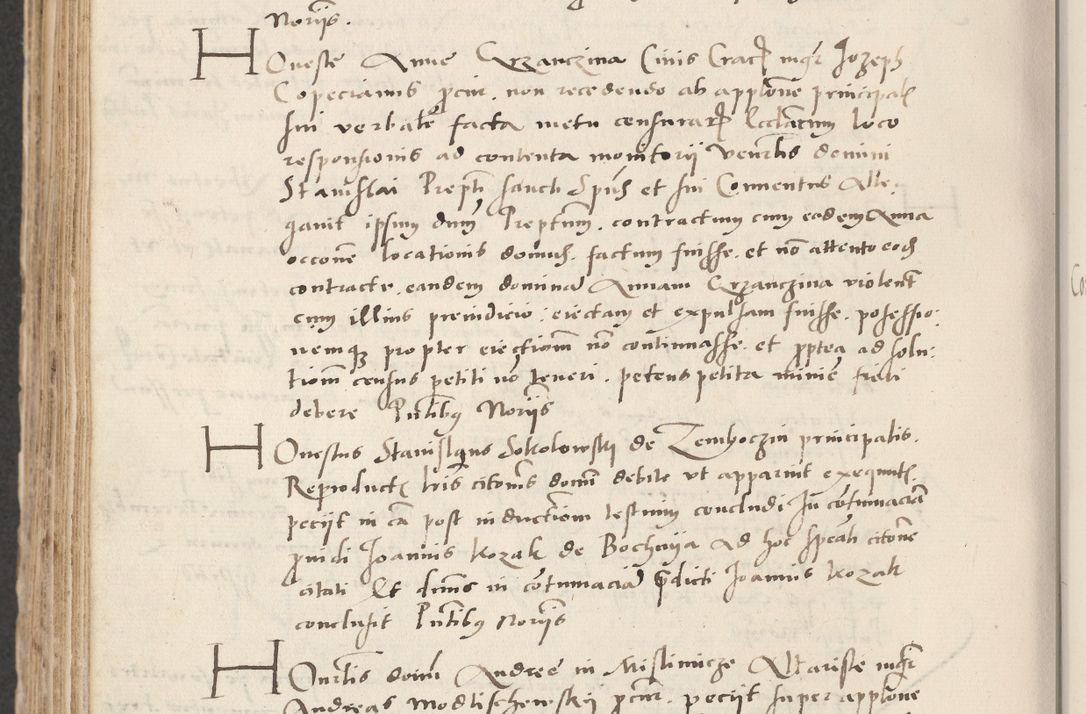 Noriis.
Honeste Anne Grzanczina Civis Crac mgr Jozeph
Copecianus pcur. non recedendo ab applone principal
sui verbalr facta metu censurar Ecclarum loco
responsionis ad contenta monitorij venrlis domini
Stanislai Prepti sancti Spus et sui Conventus Alle
gavit ipsum dnm Preptum. contractum cum eadem Anna
occone locationis domus. factum fuisse. et no attento eod
contractu. eandem dominam Annam Grzanczina violent
cum illius preiudicio eiectam et expulsam fuisse. posessio
nemque propter eiectionem no continuasse. et pptea ad solu
tionem census petiti no teneri. petens petita minime fieri
debere Pntibus Noriis
Honestus Stanislaus Sokolowski de Zemboczin principalis.
Reproduct lris citonis domi debite ut apparuit exequut
peciit in ca post inductionem testium concludi In cotumaciam
pvidi Joannis Kozak de Bochnija ad hoc speali citone
citati Et dnus in cotumacia pdicti Joannis Kozak
conclusit Pntibus Noriis
Honrlis domi Andree in Mislimicze Altariste mgr
Andreas Modlischewskij pcur. peciit super applone